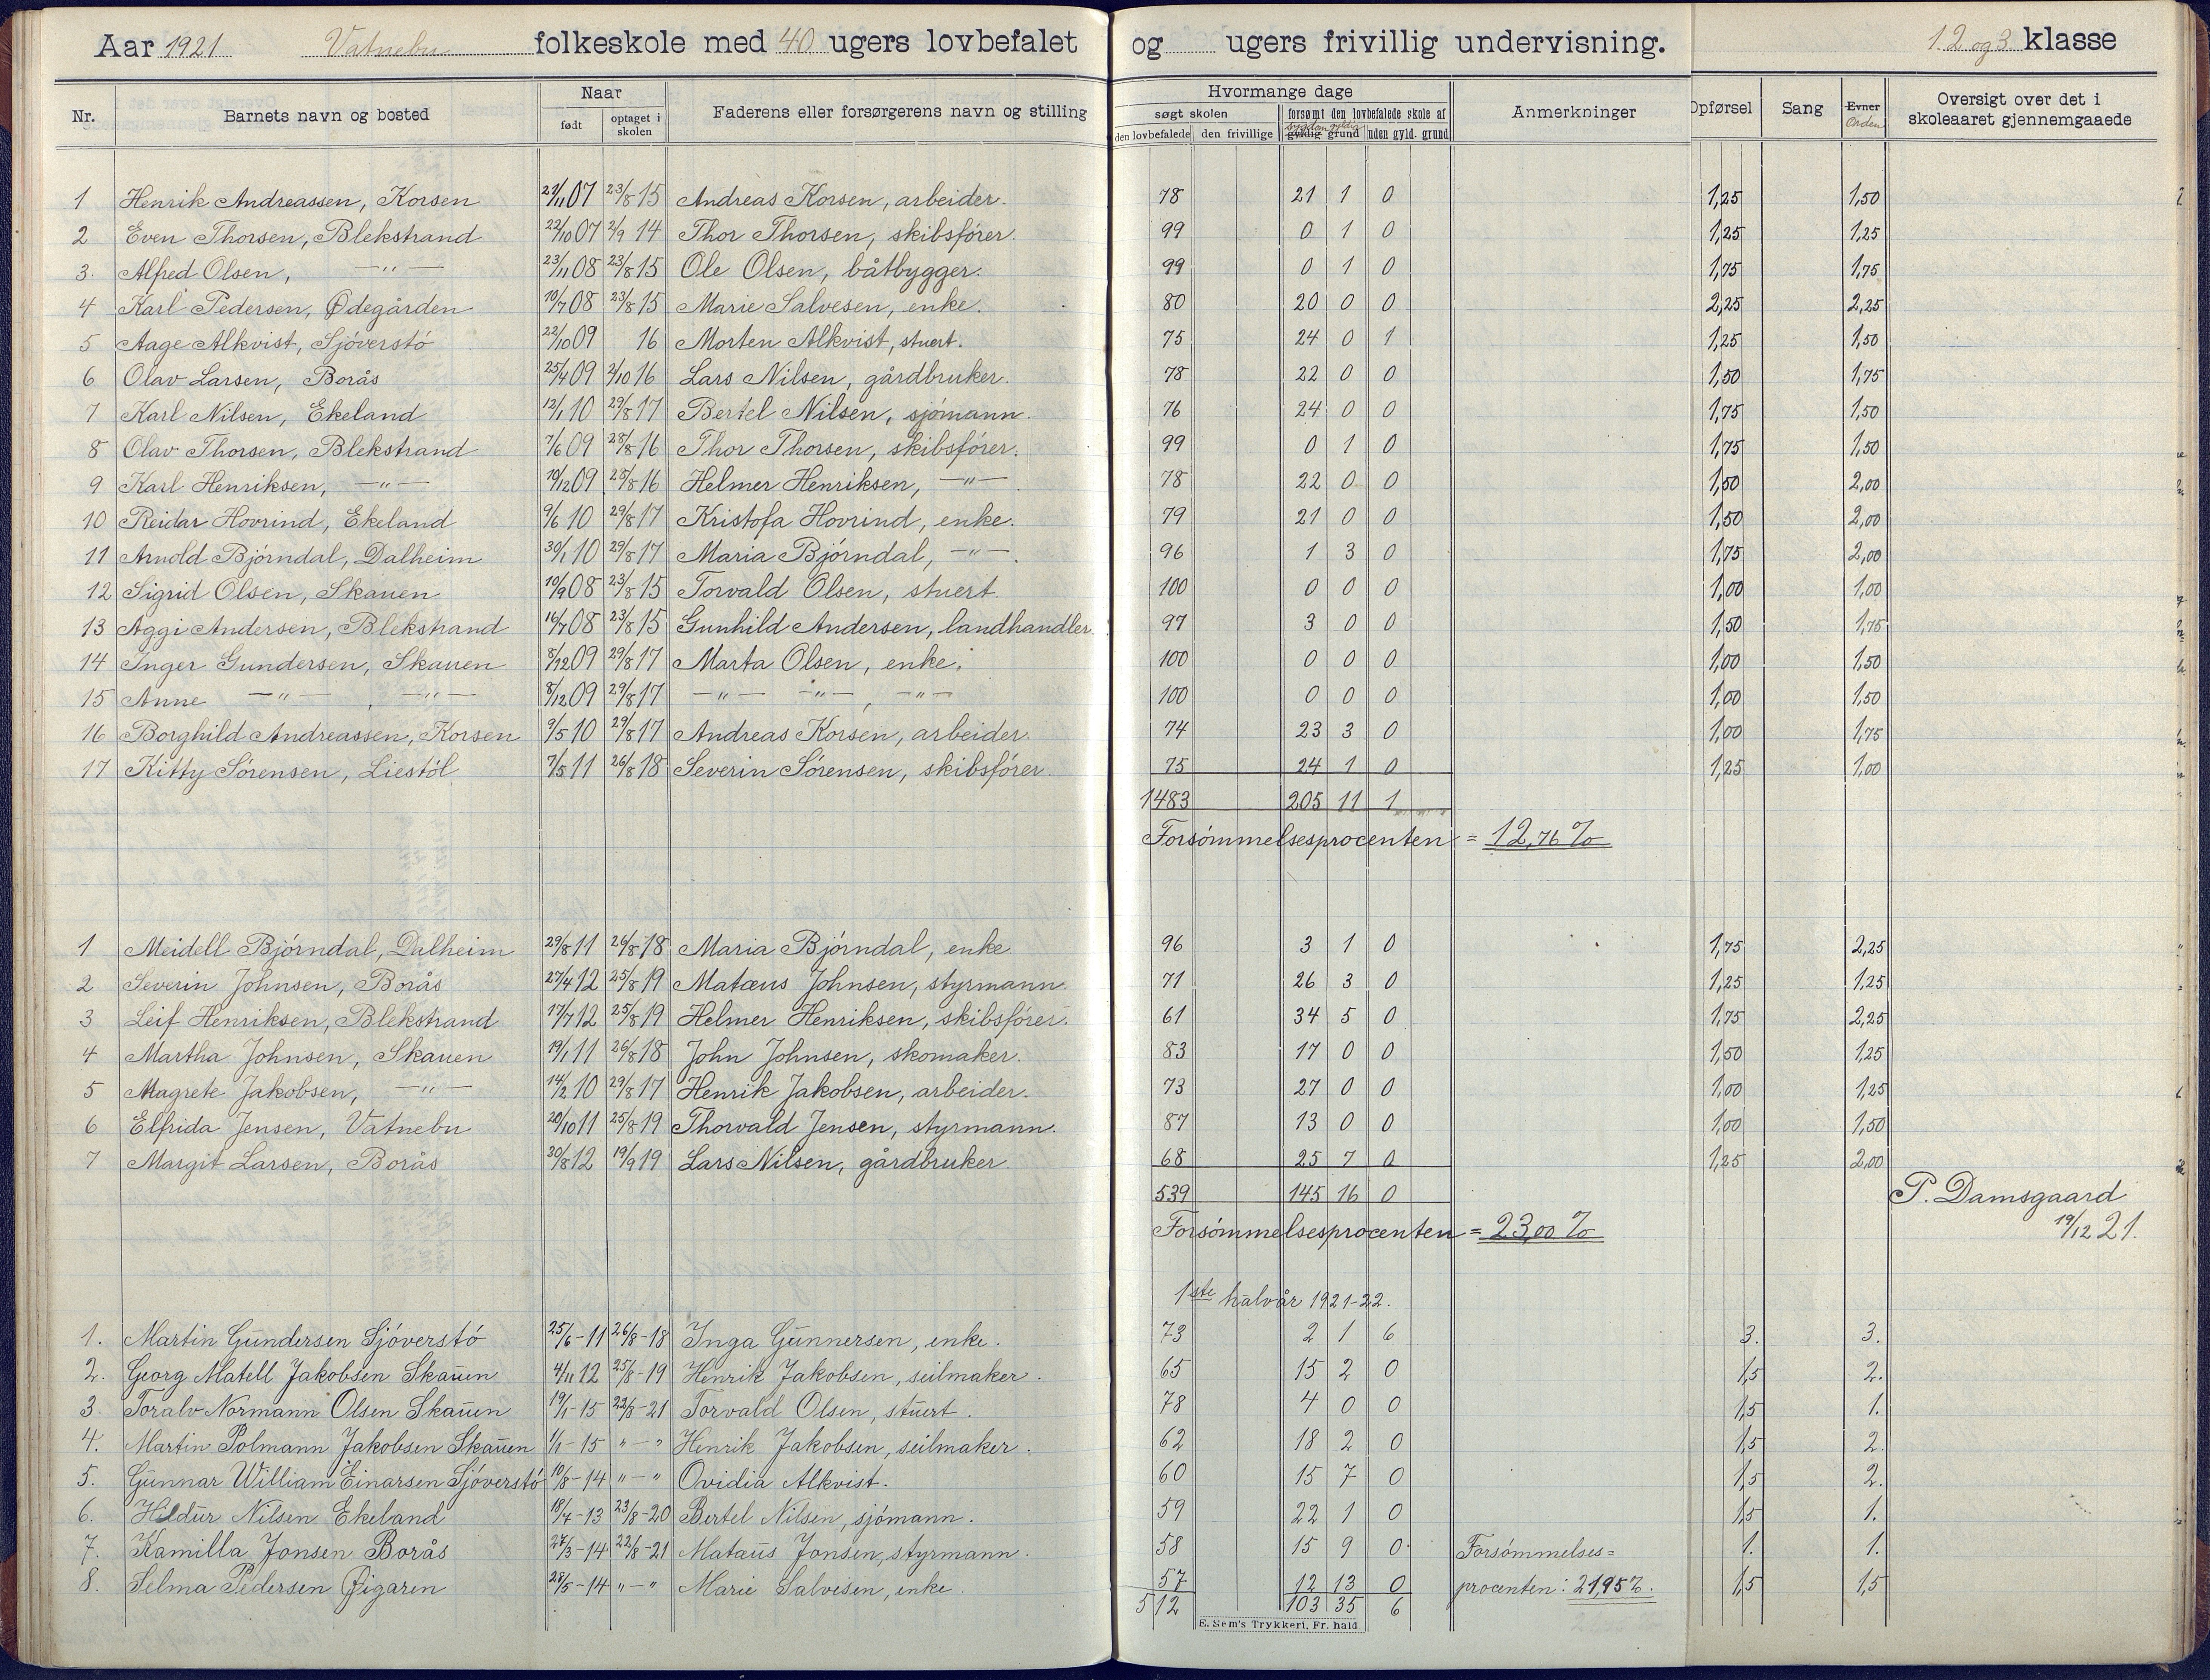 Aar 1921 Vatnebu folkeskole med 40 ugers lovbefalet og ugers frivillig undervisning. 1. 2 og 3. klasse
Nr. Barnets navn og bosted Naar født optaget i skolen Faderens eller forsørgerens navn og stilling Hvormange dage søgt skolen den lovbefalede den frivillige forsømt den lovbefalede skole af sygdom gyldig gyldig grund uden gyld. grund Anmerkninger Opførsel Sang Evner Orden Oversigt over det i skoleaaret gjennemgaaede
1 Henrik Andreassen, Korsen 21/11 07 23/8 15 Andreas Korsen, arbeider. 78 21 1 0 1,25 1,50
2 Even Thorsen, Blekstrand 22/10 07 2/9 14 Thor Thorsen, skibsfórer. 99 0 1 0 1,25 1,25
3. Alfred Olsen, —"— 23/11 08 23/8 15 Ole Olsen, båtbygger. 99 0 1 0 1,75 1,75
4 Karl Pedersen, Ødegården 10/7 08 23/8 15 Marie Salvesen, enke. 80 20 0 0 2,25 2,25
5 Aage Alkvist, Sjóverstó 22/10 09 16 Morten Alkvist, stuert. 75 24 0 1 1,25 1,50
6 Olav Larsen, Borås 25/4 09 2/10 16 Lars Nilsen, gårdbruker. 78 22 0 0 1,50 1,75
7 Karl Nilsen, Ekeland 12/1 10 29/8 17 Bertel Nilsen, sjómann. 76 24 0 0 1,75 1,50
8 Olav Thorsen, Blekstrand 7/6 09 28/8 16 Thor Thorsen, skibsfórer. 99 0 1 0 1,75 1,50
9 Karl Henriksen, —"— 19/12 09 28/8 16 Helmer Henriksen, —"— 78 22 0 0 1,50 2,00
10 Reidar Hovrind, Ekeland 9/6 10 29/8 17 Kristofa Hovrind, enke. 79 21 0 0 1,50 2,00
11 Arnold Bjórndal, Dalheim 30/1 10 29/8 17 Maria Bjórndal, —"—. 96 1 3 0 1,75 2,00
12 Sigrid Olsen, Skauen 10/9 08 23/8 15 Torvald Olsen, stuert. 100 0 0 0 1,00 1,00
13 Aggi Andersen, Blekstrand 16/7 08 23/8 15 Gunhild Andersen, landhandler. 97 3 0 0 1,50 1,75
14 Inger Gundersen, Skauen 8/12 09 29/8 17 Marta Olsen, enke. 100 0 0 0 1,00 1,50
15 Anne —"—, —"— 8/12 09 29/8 17 —"— —"—, —"— 100 0 0 0 1,00 1,50
16 Borghild Andreassen, Korsen 9/5 10 29/8 17 Andreas Korsen, arbeider. 74 23 3 0 1,00 1,75
17 Kitty Sórensen, Liestól 7/5 11 26/8 18 Severin Sórensen, skibsfórer. 75 24 1 0 1,25 1,00
1483 205 11 1
Forsómmelsesprocenten = 12,76 %
1 Meidell Bjórndal, Dalheim 29/8 11 26/8 18 Maria Bjórndal, enke 96 3 1 0 1,75 2,25
2 Severin Johnsen, Borås 27/4 12 25/8 19 Matæus Johnsen, styrmann. 71 26 3 0 1,25 1,25
3 Leif Henriksen, Blekstrand 17/7 12 25/8 19 Helmer Henriksen, skibsfórer. 61 34 5 0 1,75 2,25
4 Martha Johnsen, Skauen 19/1 11 26/8 18 John Johnsen, skomaker. 83 17 0 0 1,50 1,25
5 Magrete Jakobsen, —"— 14/2 10 29/8 17 Henrik Jakobsen, arbeider. 73 27 0 0 1,00 1,25
6 Elfrida Jensen, Vatnebu 20/10 11 25/8 19 Thorvald Jensen, styrmann. 87 13 0 0 1,00 1,50
7 Margit Larsen, Borås 30/8 12 19/9 19 Lars Nilsen, gårdbruker. 68 25 7 0 1,25 2,00
539 145 16 0 P. Damsgaard
Forsómmelsesprocenten = 23,00 % 19/12 21.
1ste halvår 1921-22.
1. Martin Gundersen Sjóverstó 25/6-11 26/8-18 Inga Gunnersen, enke. 73 2 1 6 3. 3.
2. Georg Matell Jakobsen Skauen 4/11 12 25/8-19 Henrik Jakobsen, seilmaker. 65 15 2 0 1,5 2.
3. Toralv Normann Olsen Skauen 19/1-15 22/8-21 Torvald Olsen, stuert. 78 4 0 0 1,5 1.
4. Martin Polmann Jakobsen Skauen 1/1-15 "—" Henrik Jakobsen, seilmaker. 62 18 2 0 1,5 2.
5. Gunnar William Einarsen Sjóverstó 10/8-14 "—" Ovidia Alkvist. 60 15 7 0 1,5 2.
6. Hildur Nilsen Ekeland 18/4-13 23/8-20 Bertel Nilsen, sjómann. 59 22 1 0 1,5 1.
7. Kamilla Jonsen Borås 27/3-14 22/8-21 Matæus Jonsen, styrmann. 58 15 9 0 Forsómmelses= 1. 1.
8. Selma Pedersen Øigaren 28/5-14 "—" Marie Salvisen, enke. 57 12 13 0 procenten: 21,95%. 1,5 1,5
512 103 35 6
E. Sem's Trykkeri, Fr. hald